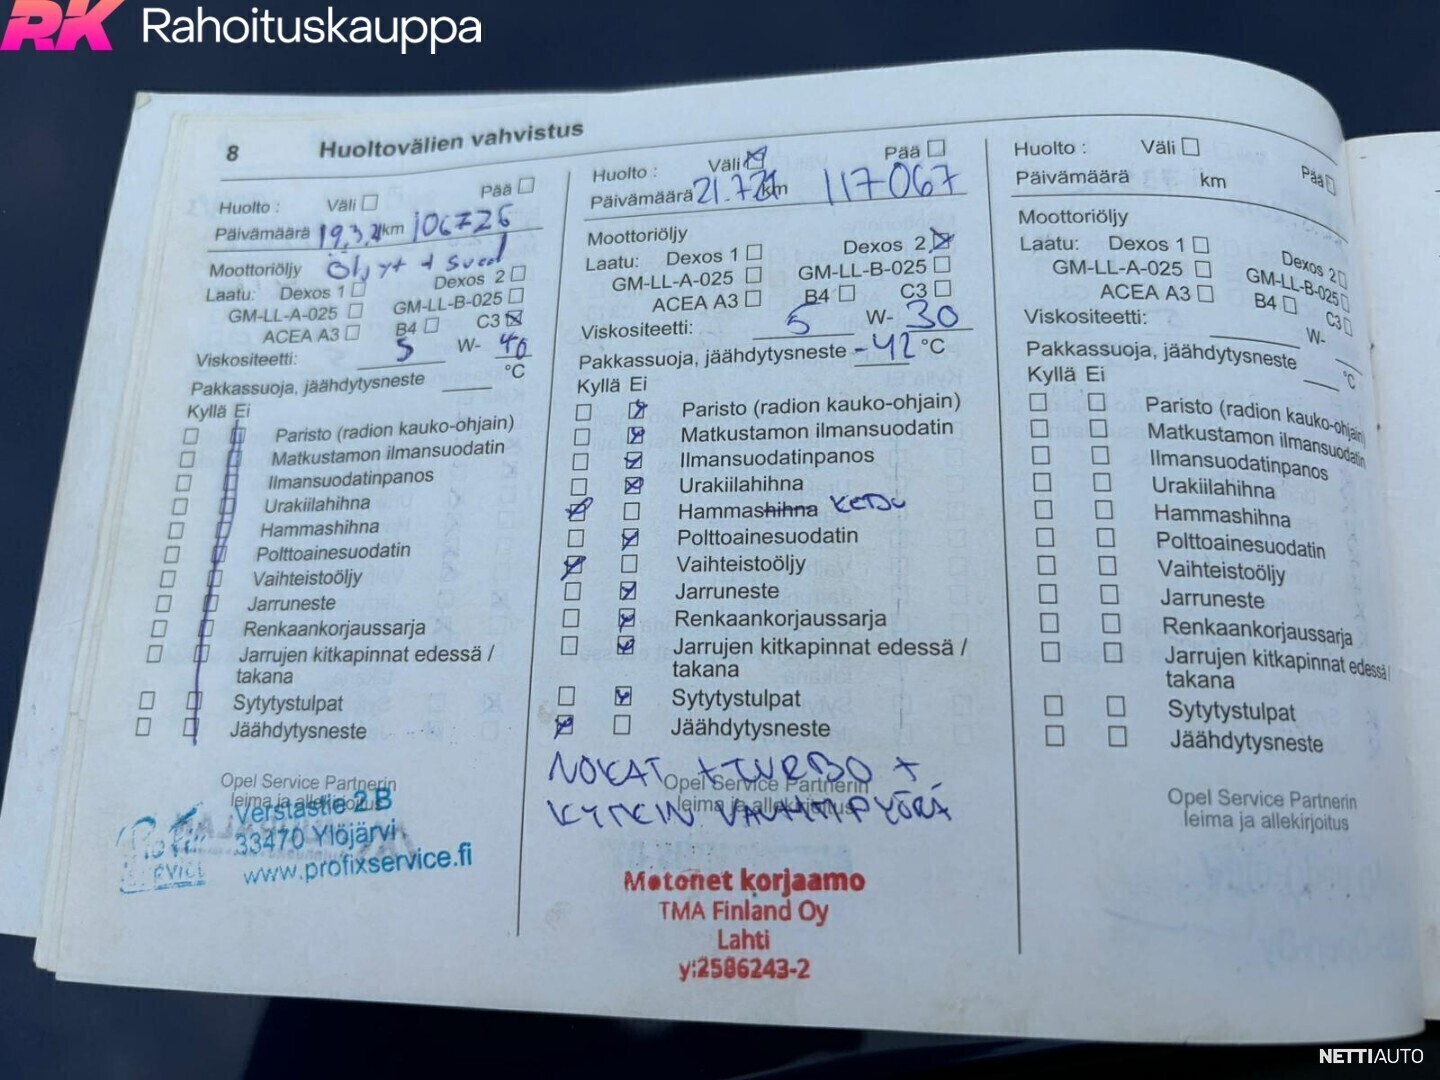 RK Rahoituskauppa
8 Huoltovälien vahvistus
Huolto : Väli Pää
Päivämäärä 19.3.21 km 106726
Moottoriöljy Öljyt + suod
Laatu: Dexos 1 Dexos 2
GM-LL-A-025 GM-LL-B-025
ACEA A3 B4 C3
Viskositeetti: 5 W- 40
Pakkassuoja, jäähdytysneste °C
Kyllä Ei
Paristo (radion kauko-ohjain)
Matkustamon ilmansuodatin
Ilmansuodatinpanos
Urakiilahihna
Hammashihna
Polttoainesuodatin
Vaihteistoöljy
Jarruneste
Renkaankorjaussarja
Jarrujen kitkapinnat edessä /
takana
Sytytystulpat
Jäähdytysneste
Opel Service Partnerin
leima ja allekirjoitus
Verstastie 2 B
33470 Ylöjärvi
www.profixservice.fi
Huolto : Väli Pää
Päivämäärä 21.7.21 km 117067
Moottoriöljy
Laatu: Dexos 1 Dexos 2
GM-LL-A-025 GM-LL-B-025
ACEA A3 B4 C3
Viskositeetti: 5 W- 30
Pakkassuoja, jäähdytysneste -42 °C
Kyllä Ei
Paristo (radion kauko-ohjain)
Matkustamon ilmansuodatin
Ilmansuodatinpanos
Urakiilahihna
Hammashihna KETJU
Polttoainesuodatin
Vaihteistoöljy
Jarruneste
Renkaankorjaussarja
Jarrujen kitkapinnat edessä /
takana
Sytytystulpat
Jäähdytysneste
NOKAT + TURBO +
Opel Service Partnerin
leima ja allekirjoitus
KYTKIN VAUHTIPYÖRÄ
Motonet korjaamo
TMA Finland Oy
Lahti
y:2586243-2
Huolto : Väli Pää
Päivämäärä km
Moottoriöljy
Laatu: Dexos 1 Dexos 2
GM-LL-A-025 GM-LL-B-025
ACEA A3 B4 C3
Viskositeetti: W-
Pakkassuoja, jäähdytysneste °C
Kyllä Ei
Paristo (radion kauko-ohjain)
Matkustamon ilmansuodatin
Ilmansuodatinpanos
Urakiilahihna
Hammashihna
Polttoainesuodatin
Vaihteistoöljy
Jarruneste
Renkaankorjaussarja
Jarrujen kitkapinnat edessä /
takana
Sytytystulpat
Jäähdytysneste
Opel Service Partnerin
leima ja allekirjoitus
NETTIAUTO